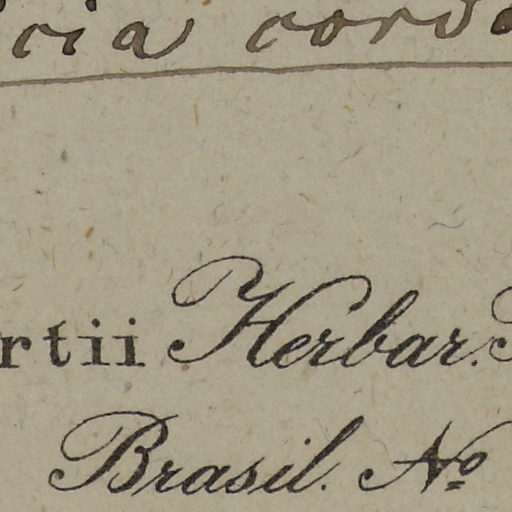 cia cord
rtii Herbar.
Brasil. No